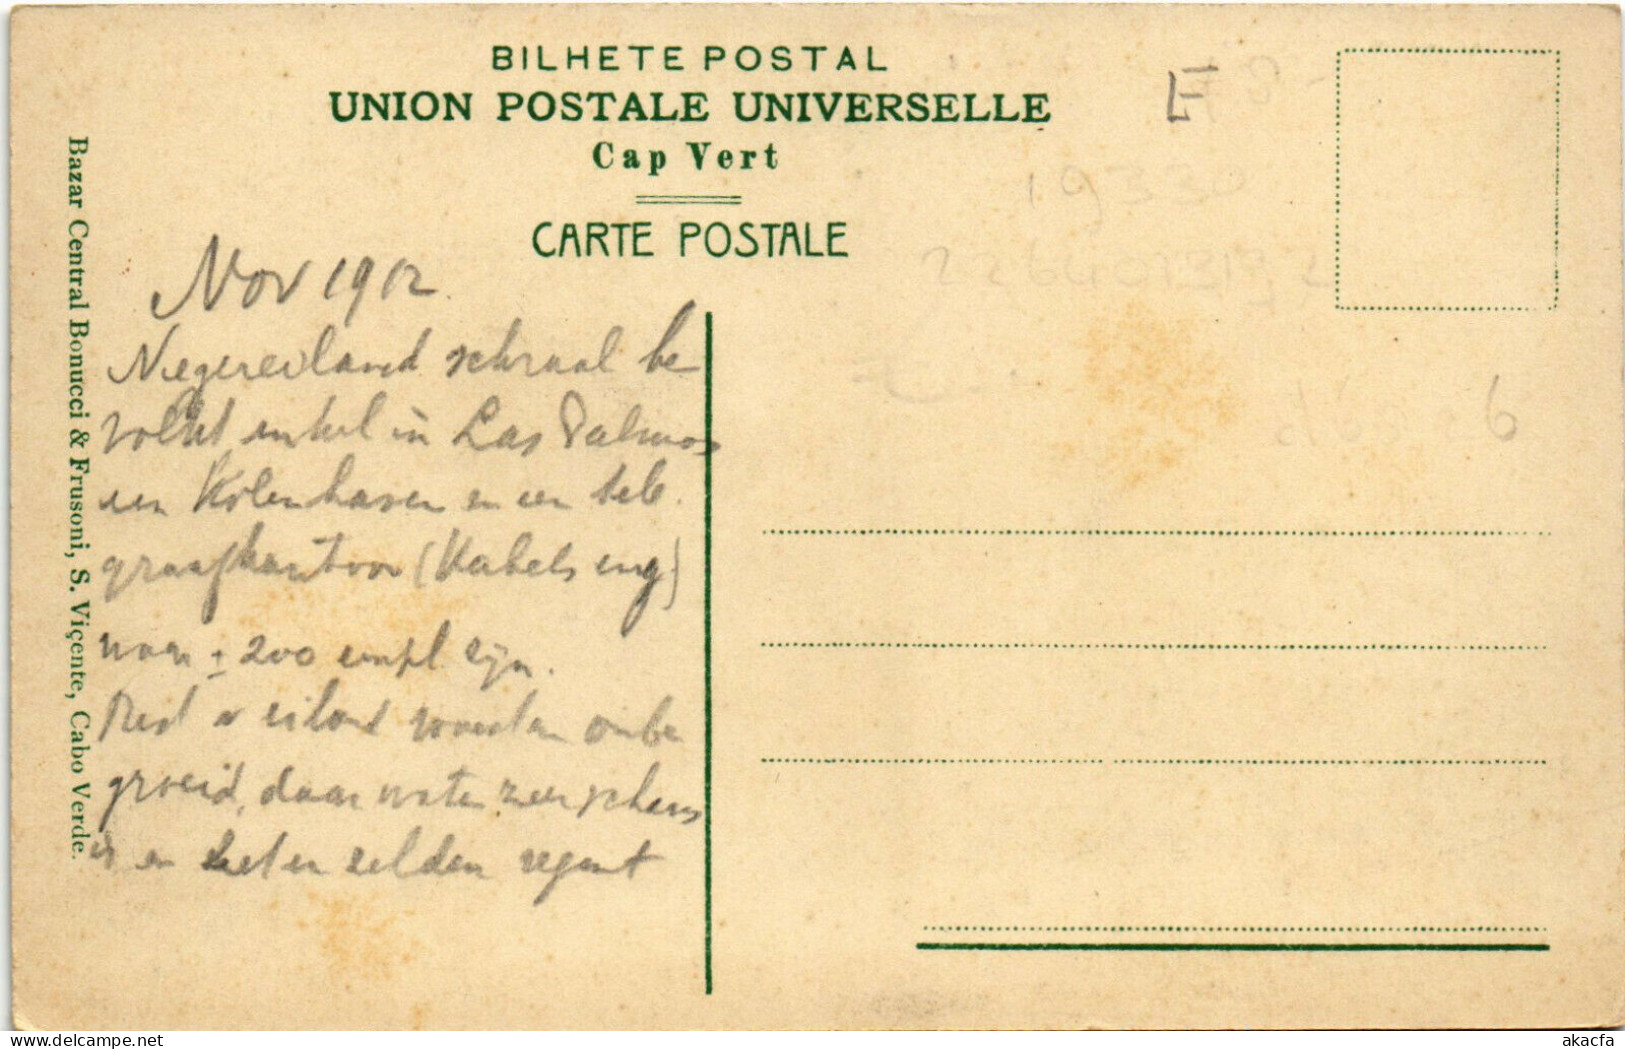 BILHETE POSTAL
UNION POSTALE UNIVERSELLE
Cap Vert
CARTE POSTALE
Bazar Central Bonucci & Frusoni, S. Viçente, Cabo Verde.
Nov 1912.
Negereiland schraal be
volkt enkel in Las Palmas
een Kolenhaven en een tele
graafkantoor (Kabels eng.)
waar ± 200 empl zijn.
Rest v eiland woesten onbe
groeid, daar water zeer schaars
is en het er zelden regent
E
19330
6
delcampe.net
akacfa